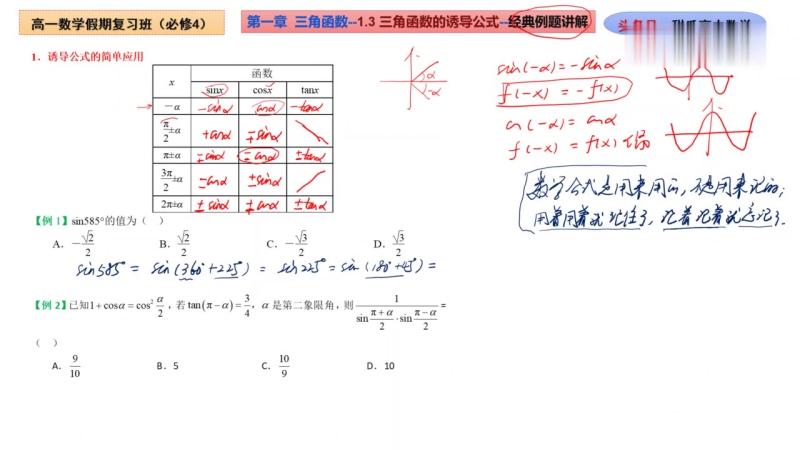 高一数学假期复习班（必修4）
第一章 三角函数--1.3 三角函数的诱导公式--经典例题讲解
1．诱导公式的简单应用
x 函数
sinx cosx tanx
-α -sinα cosα -tanα
π/2±α +cosα ∓sinα
π±α ∓sinα -cosα ±tanα
3π/2±α -cosα ±sinα
2π±α ±sinα +cosα ±tanα
α
-α
sin(-α)=-sinα
f(-x) = -f(x)
cos(-α)= cosα
f(-x) = f(x) 偶
数学公式是用来用的，不是用来记的；
用着用着就记住了，记着记着就忘记了.
【例 1】sin585°的值为（ ）
A．-√2/2 B．√2/2 C．-√3/2 D．√3/2
sin585° = sin(360°+225°) = sin225° = sin(180°+45°) =
【例 2】已知1+cosα=cos²α/2，若tan(π-α)=3/4，α是第二象限角，则 1/(sin(π+α)/2·sin(π-α)/2) =
（ ）
A．9/10 B．5 C．10/9 D．10